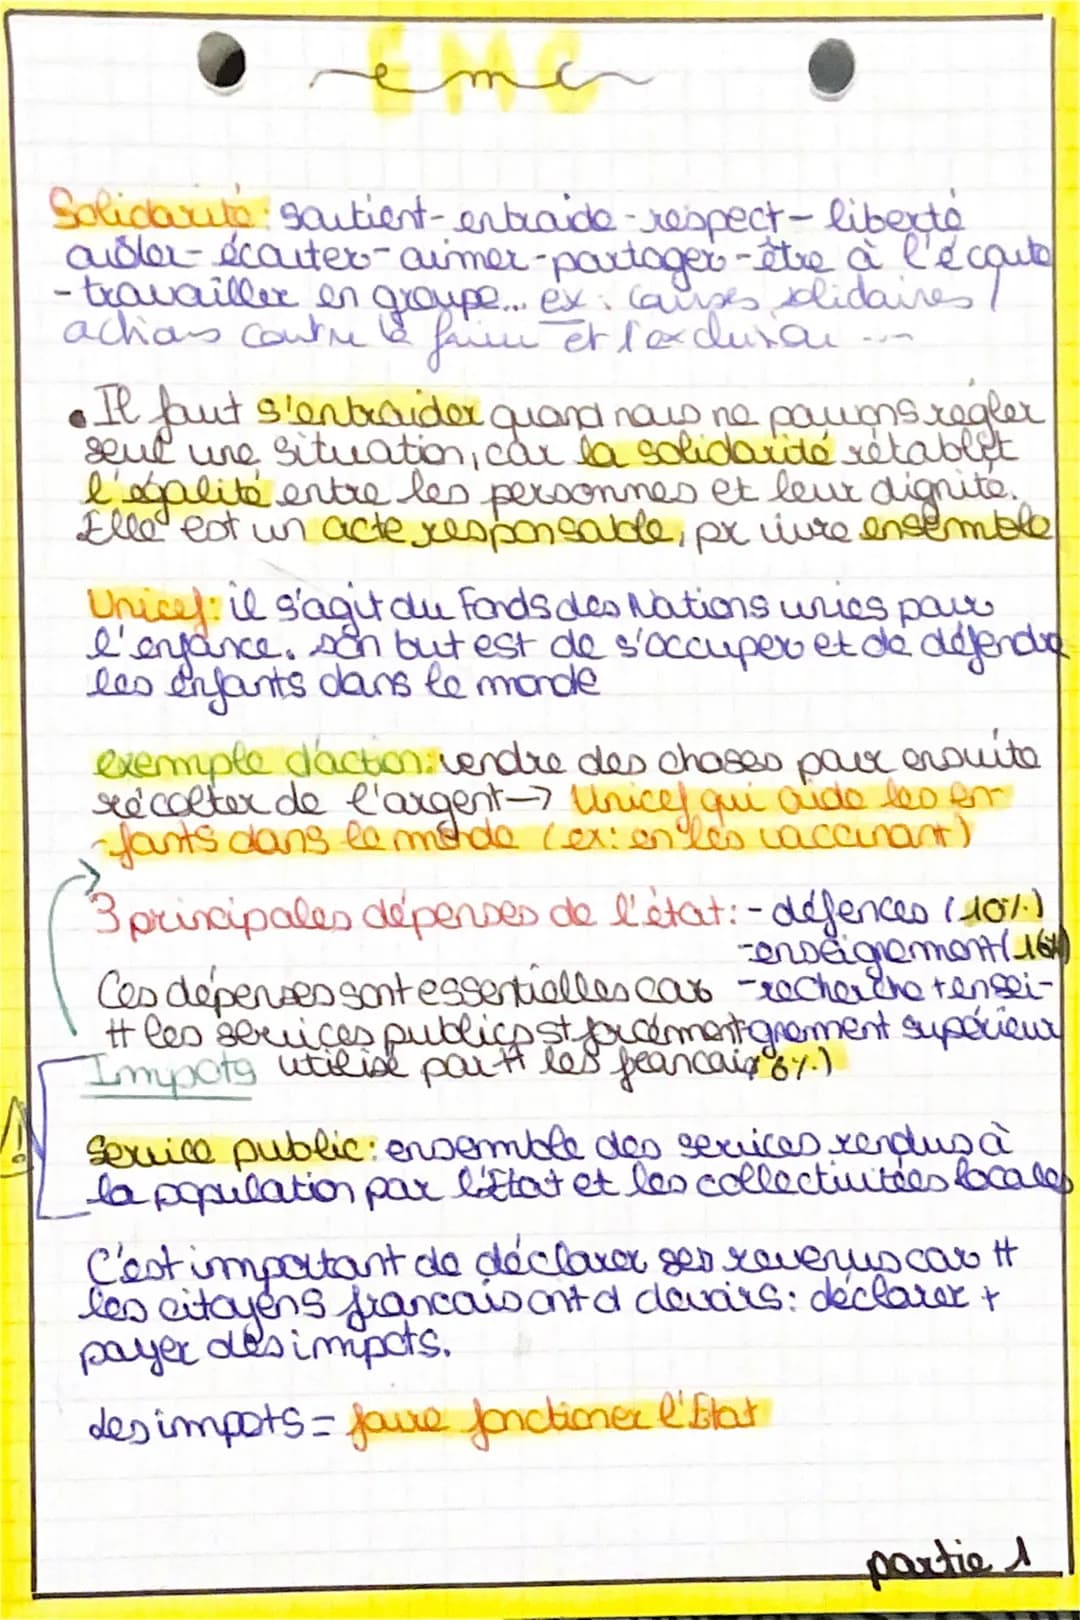 EMC
emc
Solidarité: soutient - entraide - respect - liberté
aider - écouter - aimer - partager - être à l'écoute
- travailler en groupe... ex: causes solidaires /
actions contre la faim et l'exclusion ...
• Il faut s'entraider quand nous ne pouvons régler
seul une situation, car la solidarité rétablit
l'égalité entre les personnes et leur dignité.
Elle est un acte responsable, pr vivre ensemble
Unicef: il s'agit du Fonds des Nations unies pour
l'enfance. son but est de s'occuper et de défendre
les enfants dans le monde
exemple d'action: vendre des choses pour ensuite
récolter de l'argent → Unicef qui aide les en-
-fants dans le monde (ex: en les vaccinant)
3 principales dépenses de l'état: - défences (10%)
- enseignement (16%)
Ces dépenses sont essentielles car - recherche + ensei-
tt les services publics st forcément gnement supérieur
Impots utilisé par tt les francais 6%)
Service public: ensemble des services rendus à
la population par l'État et les collectivitées locales
C'est important de déclarer ses revenus car tt
les citoyens francais ont d devoirs: déclarer +
payer des impots.
des impots = faire fonctioner l'État
partie 1